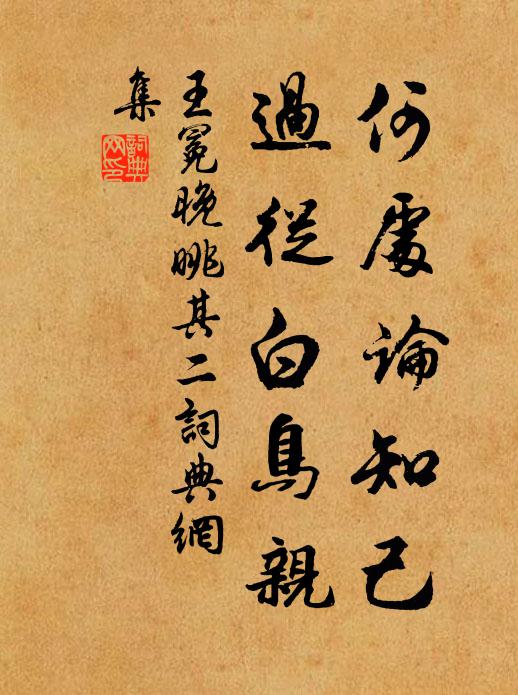 何處論知己
過從白鳥親
王冕晚眺其二詞典網
集
詞典
网印